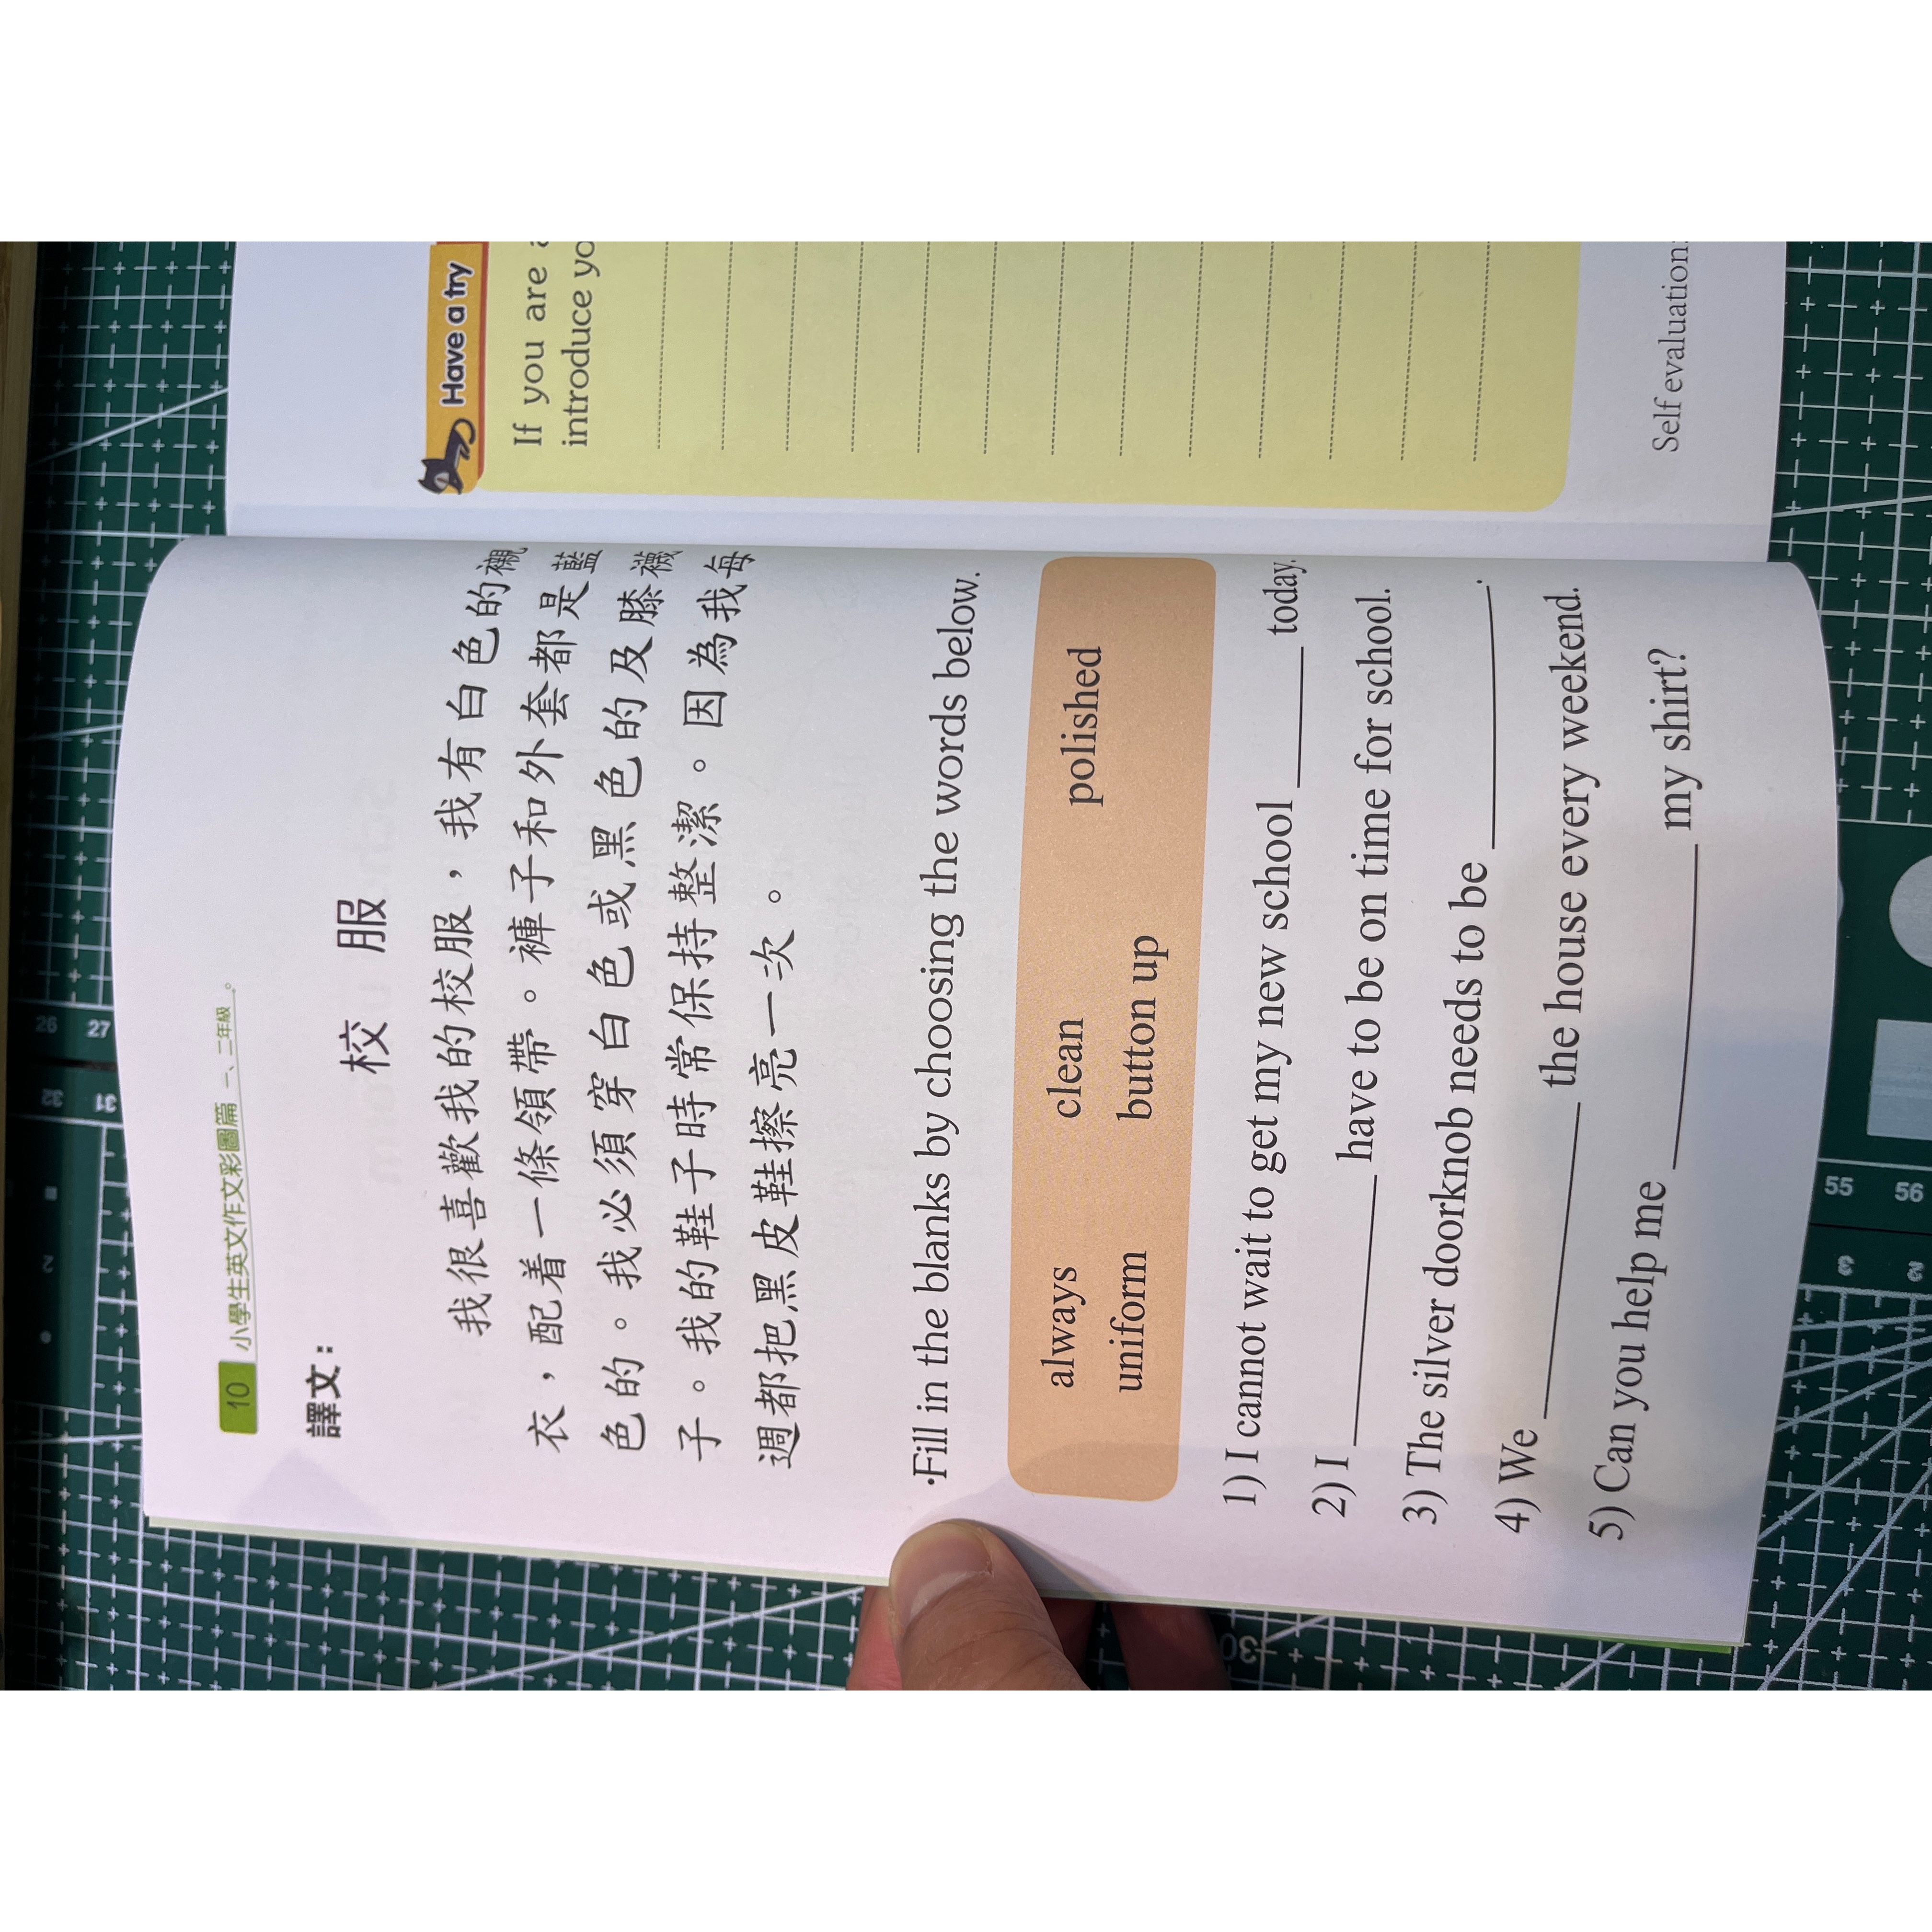 10 小學生英文作文彩圖篇 一、二年級。
譯文：
校 服
我很喜歡我的校服，我有白色的襯
衣，配着一條領帶。褲子和外套都是藍
色的。我必須穿白色或黑色的及膝襪
子。我的鞋子時常保持整潔。因為我每
週都把黑皮鞋擦亮一次。
·Fill in the blanks by choosing the words below.
always clean polished
uniform button up
1) I cannot wait to get my new school ______ today.
2) I ____________ have to be on time for school.
3) The silver doorknob needs to be ____________.
4) We ______________ the house every weekend.
5) Can you help me ______________ my shirt?
Have a try
If you are
introduce yo
Self evaluation:
26
27
32
31
2
30
55
56
3